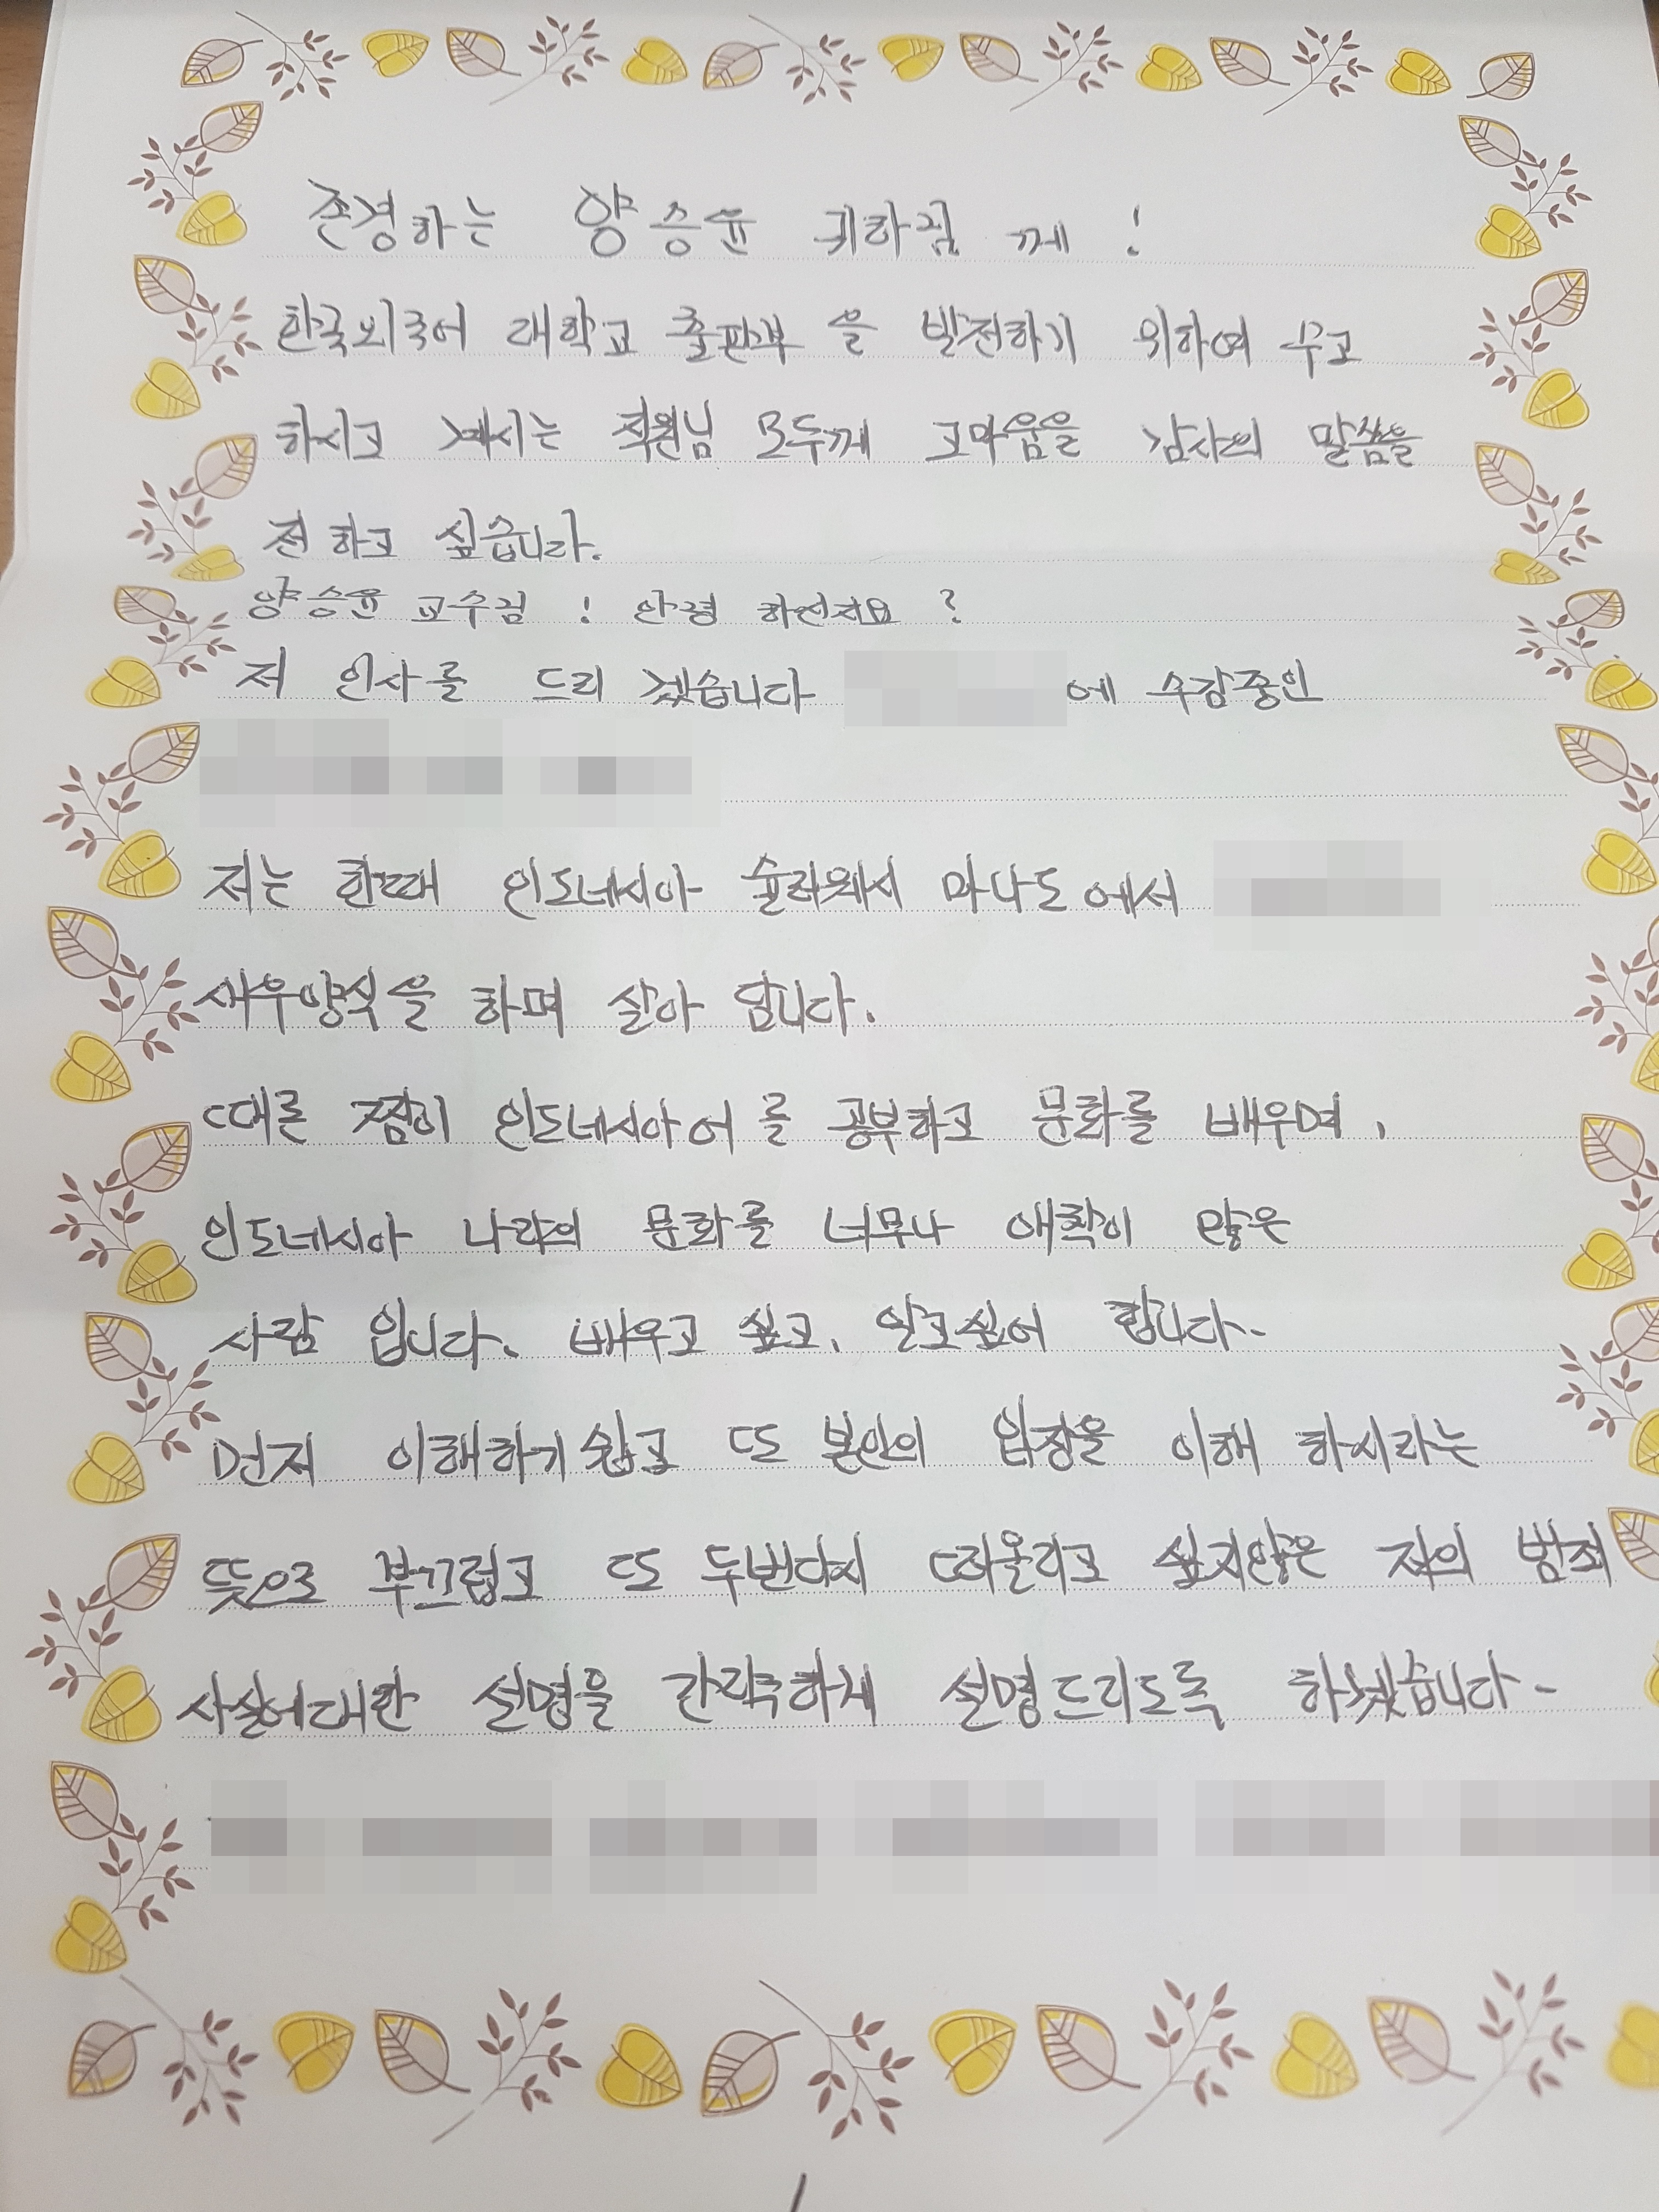 존경하는 양승윤 귀하님 께 !
한국외국어 대학교 출판부 을 발전하기 위하여 수고
하시고 계시는 직원님 모두께 고마움을 감사의 말씀을
전 하고 싶습니다.
양승윤 교수님 ! 안녕 하신지요 ?
저 인사를 드리 겠습니다 에 수감중인
저는 한때 인도네시아 술라웨시 마나도 에서
새우양식을 하며 살아 답니다.
때론 짬이 인도네시아어를 공부하고 문화를 배우며,
인도네시아 나라의 문화를 너무나 애착이 많은
사람 입니다. 배우고 싶고, 알고싶어 합니다-
먼저 이해하기 쉽고 또 본인의 입장을 이해 하시라는
뜻으로 부끄럽고 또 두번다시 떠올리고 싶지않은 저의 범죄
사실에대한 설명을 간략하게 설명드리도록 하겠습니다-